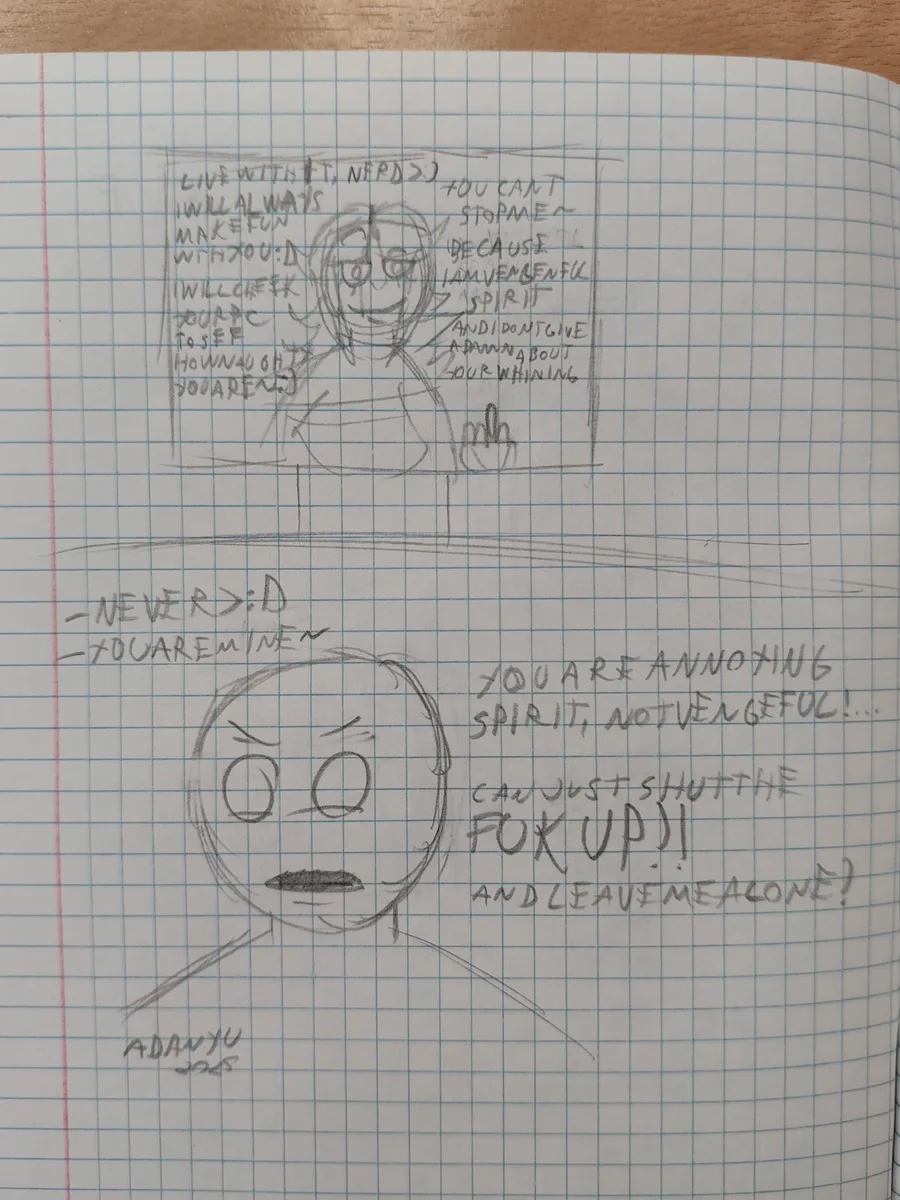 LIVE WITH IT, NERD >:)
I WILL ALWAYS
MAKE FUN
WITH YOU :D
I WILL CHEEK
YOUR PC
TO SEE
HOW NAUGHTY
YOU ARE~:)
YOU CANT
STOP ME~
BECAUSE
I AM VENGENFUL
SPIRIT
AND I DONT GIVE
A DAMN ABOUT
YOUR WHINING
-NEVER >:D
-YOU ARE MINE~
YOU ARE ANNOYING
SPIRIT, NOT VENGEFUL!...
CAN JUST SHUT THE
FUK UP?!
AND LEAVE ME ALONE?
ADANYU
2025